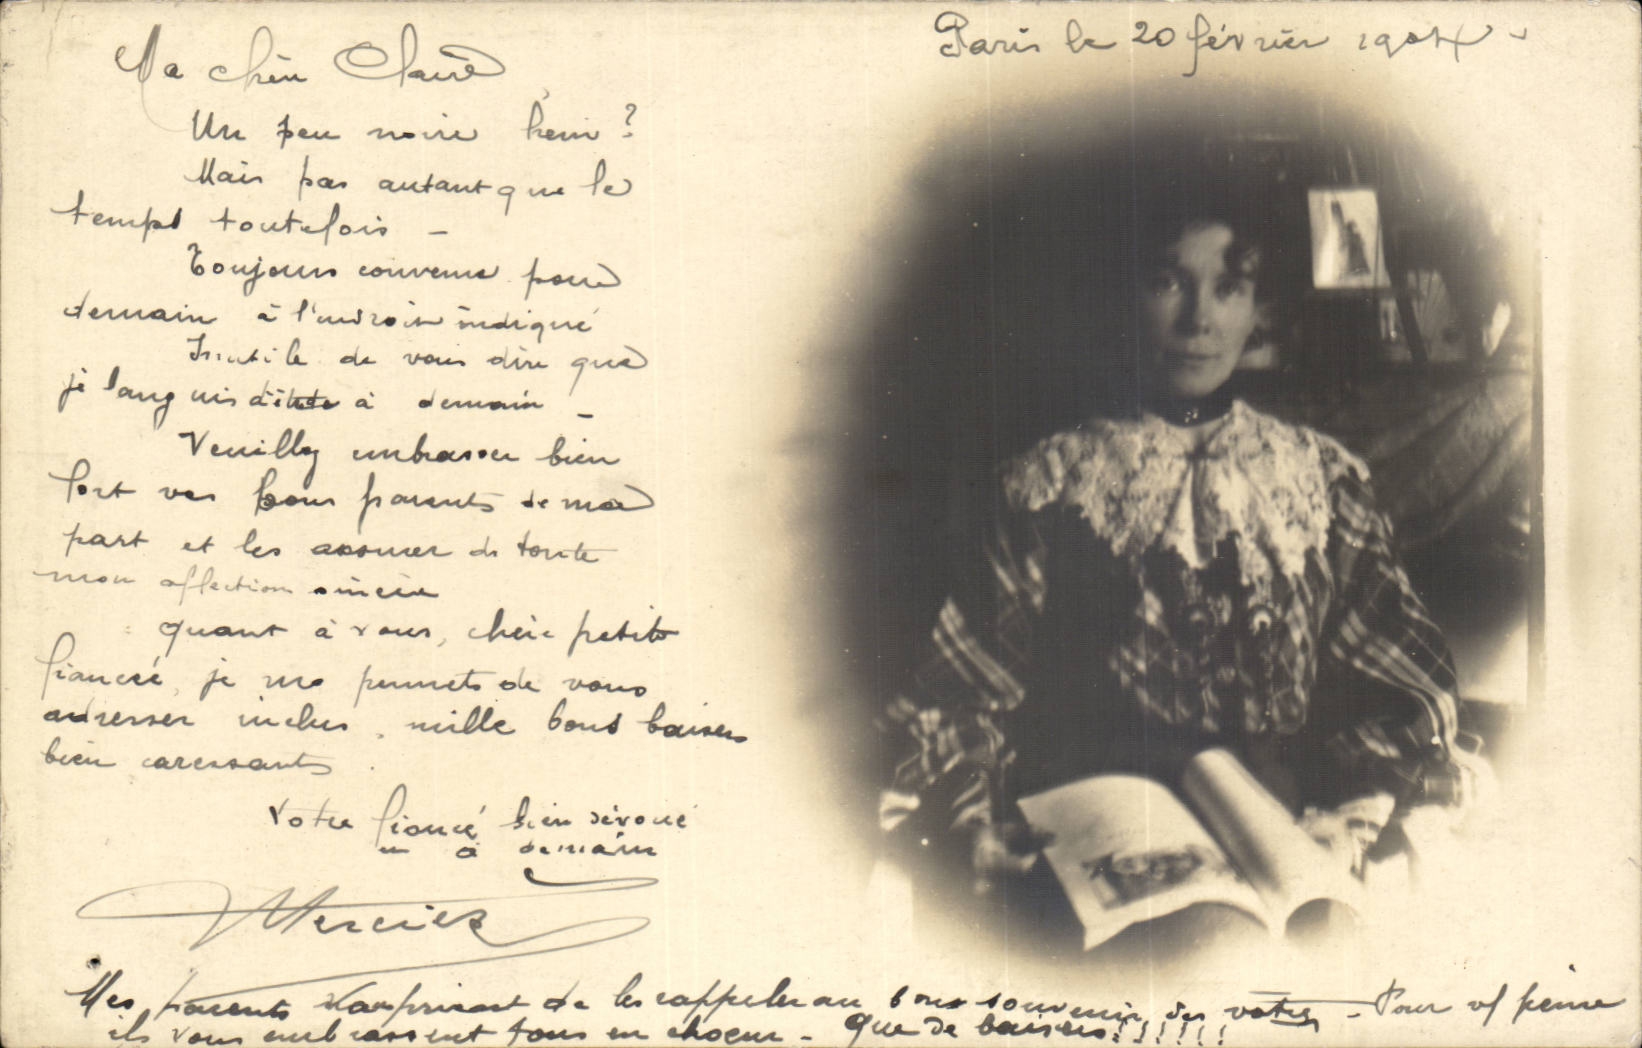 Paris le 20 février 1904
Ma chère Claire
Un peu noire hein ?
Mais pas autant que le
temps toutefois -
Toujours convenu pour
demain à l'endroit indiqué
Inutile de vous dire que
je languis d'être à demain -
Veuillez embrasser bien
fort vos bons parents de ma
part et les assurer de toute
mon affection sincère
Quant à vous, chère petite
fiancée, je me permets de vous
adresser inclus, mille bons baisers
bien caressants.
Votre fiancé bien dévoué
à demain
Mercier
Mes parents de les rappeler au bon souvenir des votres - Pour v/ peine
ils vous embrassent tous en choeur - Que de baisers !!!!!!